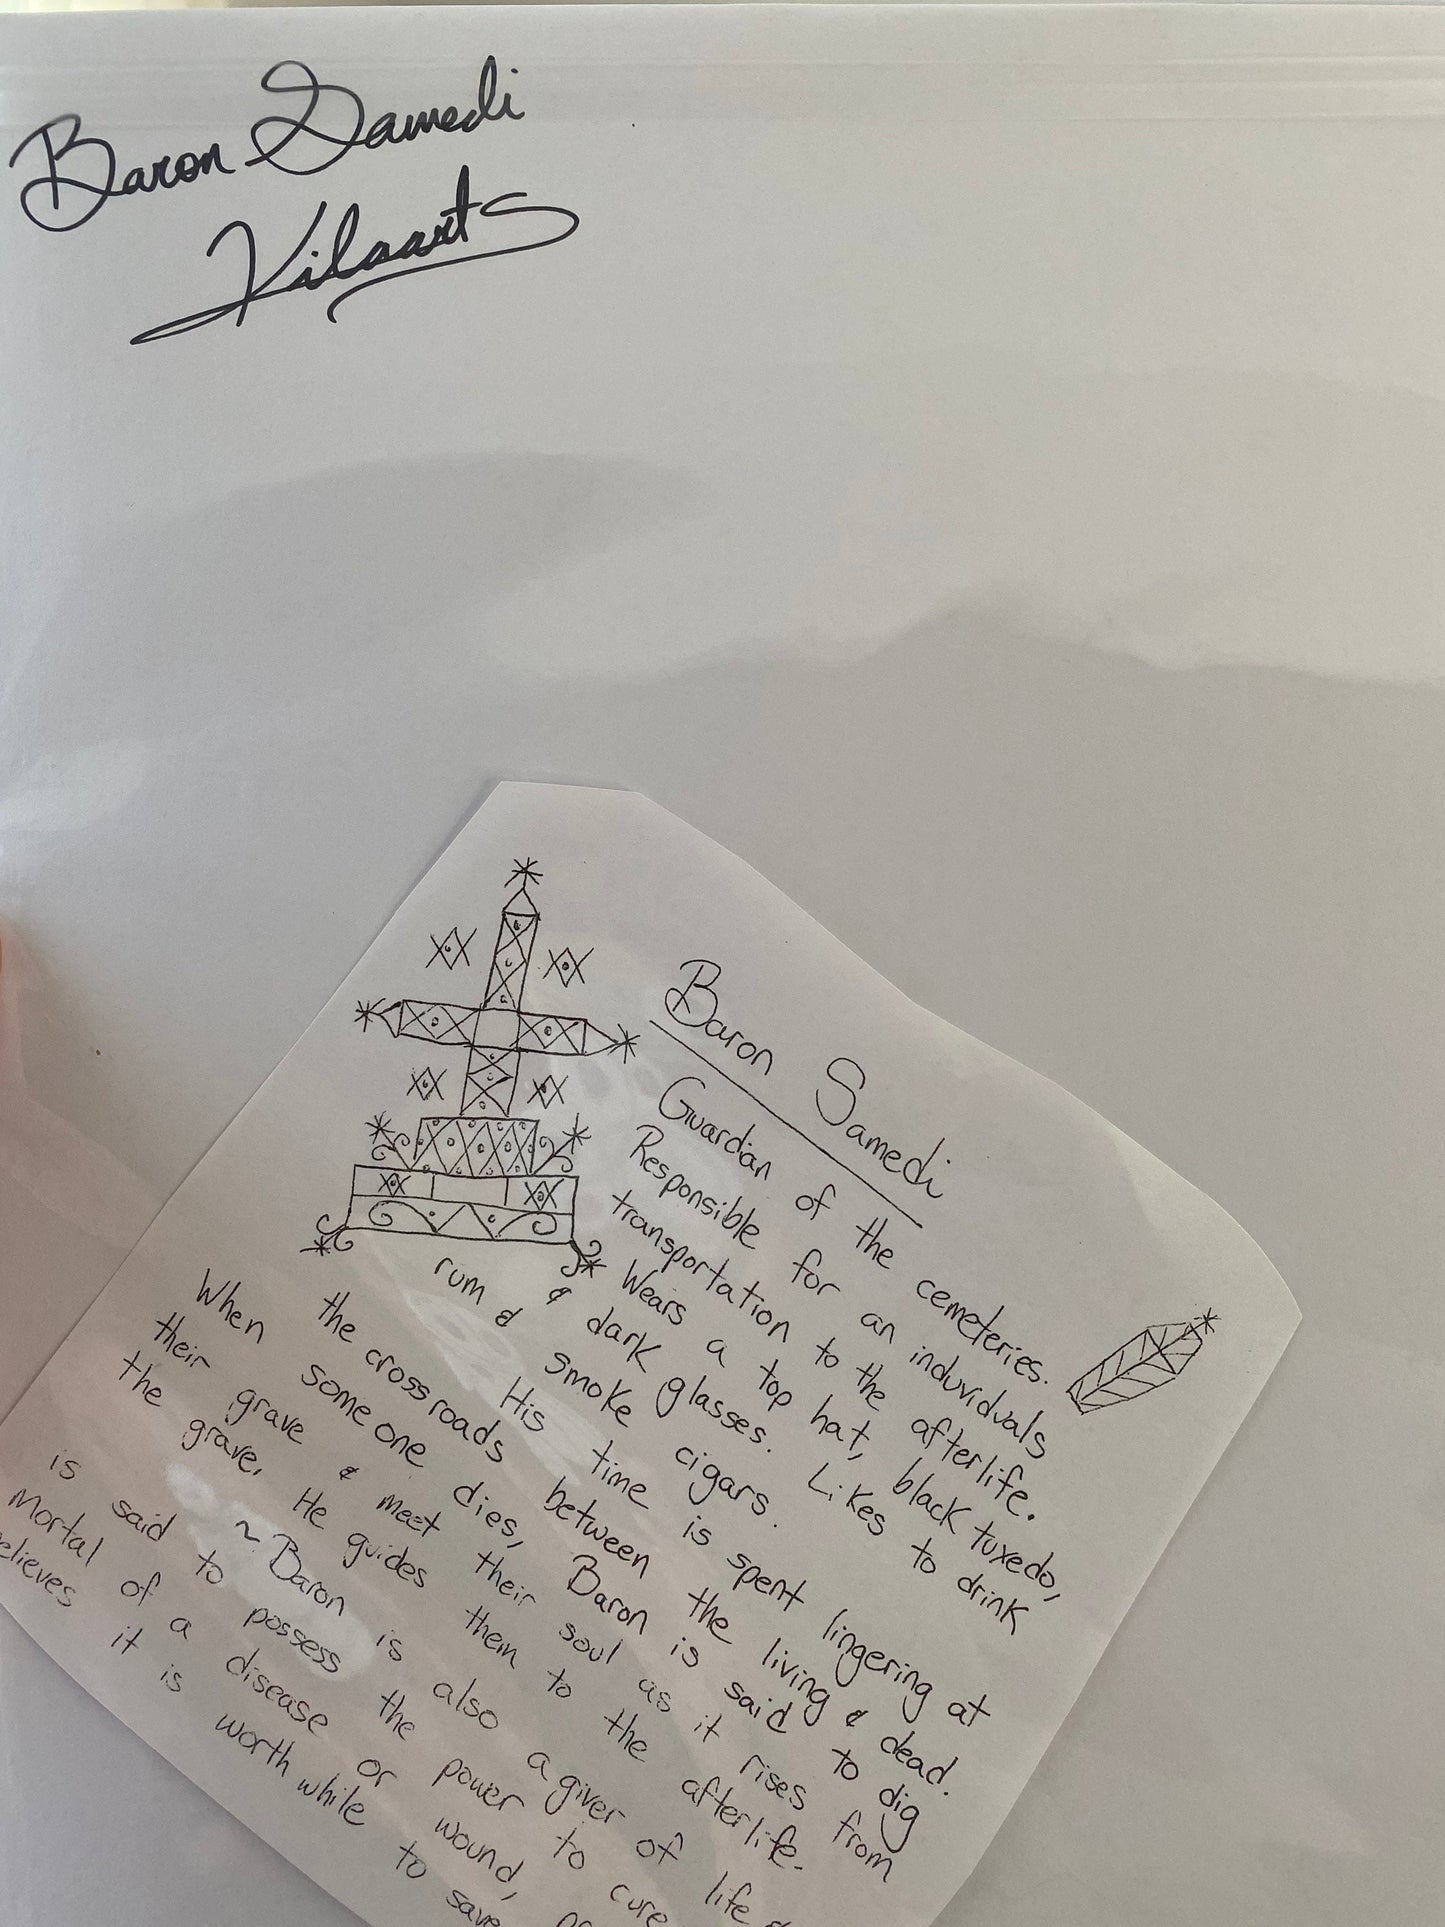 Baron Samedi
Kilaarts
Baron Samedi
Guardian of the cemeteries.
Responsible for an individuals
transportation to the afterlife.
Wears a top hat, black tuxedo,
& dark glasses. Likes to drink
rum & smoke cigars.
His time is spent lingering at
the crossroads between the living & dead.
When someone dies, Baron is said to dig
their grave & meet their soul as it rises from
the grave. He guides them to the afterlife.
~ Baron is also a giver of life &
is said to possess the power to cure
mortal of a disease or wound,
elieves it is worth while to save